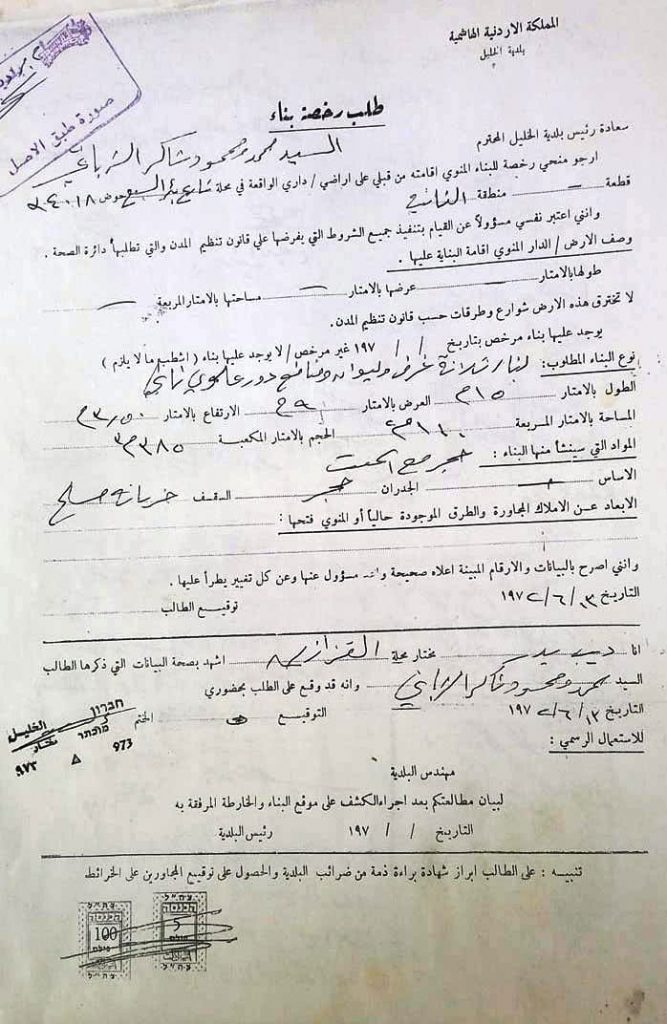 المملكة الاردنية الهاشمية
بلدية الخليل
صورة طبق الاصل
طلب رخصة بناء
سعادة رئيس بلدية الخليل المحترم
السيد محمد ومحمود شاكر الشرباتي
ارجو منحي رخصة للبناء المنوي اقامته من قبلي على اراضي / داري الواقعة في محلة شارع بئر السبع حوض ٣٤٠١٨
قطعة — منطقة الثانية
وانني اعتبر نفسي مسؤولاً عن القيام بتنفيذ جميع الشروط التي يفرضها علي قانون تنظيم المدن والتي تطلبها دائرة الصحة .
وصف الارض / الدار المنوي اقامة البناية عليها .
طولها بالامتار — عرضها بالامتار — مساحتها بالامتار المربعة —
لا تخترق هذه الارض شوارع وطرقات حسب قانون تنظيم المدن.
يوجد عليها بناء مرخص بتاريخ / / ١٩٧ غير مرخص / لا يوجد عليها بناء ( اشطب ما لا يلزم )
نوع البناء المطلوب : بناء ثلاثة غرف وليوان ومنافع دور علوي ثاني
الطول بالامتار ١٥م العرض بالامتار ٩م الارتفاع بالامتار ٣,٥٠م
المساحة بالامتار المربعة ١١٠م٢ الحجم بالامتار المكعبة ٣٨٥م٣
المواد التي سينشأ منها البناء : حجر مع اسمنت
الاساس — الجدران حجر السقف خرسانة مسلح
الابعاد عن الاملاك المجاورة والطرق الموجودة حالياً أو المنوي فتحها :
وانني اصرح بالبيانات والارقام المبينة اعلاه صحيحة وانه مسؤول عنها وعن كل تغيير يطرأ عليها .
التاريخ ١٣/٦/١٩٧٢
توقيع الطالب
انا ديب مختار محلة القزازين اشهد بصحة البيانات التي ذكرها الطالب
السيد محمد ومحمود شاكر الشرباتي وانه قد وقع على الطلب بحضوري
التاريخ ١٣/٦/١٩٧٢ التوقيع الختم
חברון الخليل
מוכתר مختار
973 ٩٧٣
للاستعمال الرسمي :
مهندس البلدية
لبيان مطالعتكم بعد اجراء الكشف على موقع البناء والخارطة المرفقة به
التاريخ / / ١٩٧ رئيس البلدية
تنبيه : على الطالب ابراز شهادة براءة ذمة من ضرائب البلدية والحصول على توقيع المجاورين على الخرائط
צה״ל
הכנסה
100
צה״ל
הכנסה
5